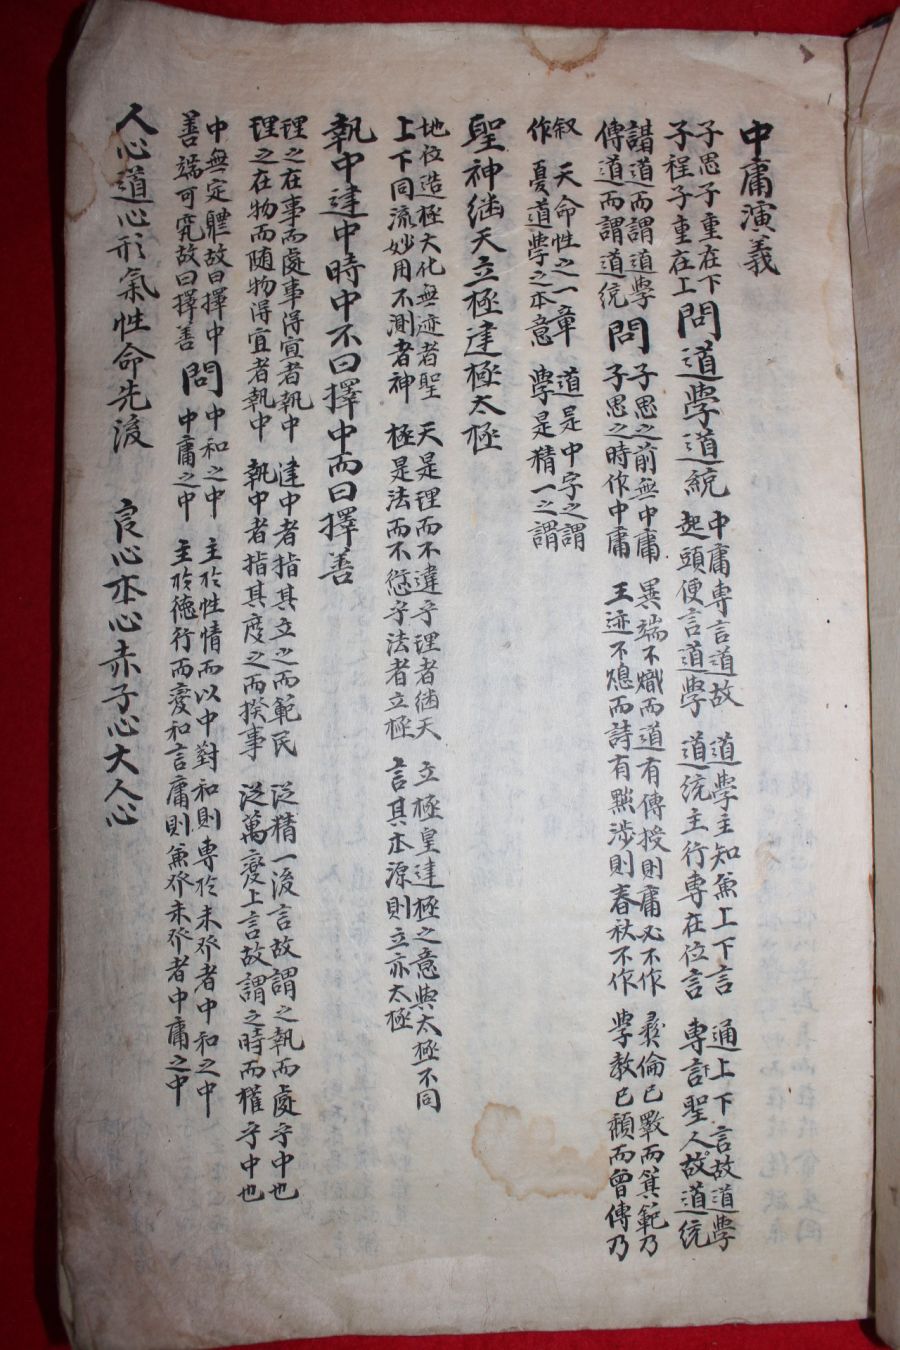 中庸演義
子思子重在下
子程子重在上
問道學道統
中庸專言道故
起頭便言道學
道學主知兼上下言
道統主行專在位言
通上下言故道學
專言聖人故道統
講道而謂道學
傳道而謂道統
問
子思之前無中庸
子思之時作中庸
異端不熾而道有傳授則庸必不作
王迹不熄而詩有黜陟則春秋不作
彛倫已斁而箕範乃
學教已頹而曾傳乃
叙
作
天命性之一章
憂道學之本意
道是中字之謂
學是精一之謂
聖神継天立極建極太極
地位造極大化無迹者聖
上下同流妙用不測者神
天是理而不違乎理者継天
極是法而不愆乎法者立極
立極皇建極之意與太極不同
言其本源則立亦太極
執中建中時中不曰擇中而曰擇善
理之在事而處事得宜者執中
理之在物而随物得宜者執中
建中者指其立之而範民
執中者指其度之而揆事
泛精一後言故謂之執而處乎中也
泛萬變上言故謂之時而權乎中也
中無定體故曰擇中
善端可究故曰擇善
問
中和之中
中庸之中
主於性情而以中對和則專於未發者中和之中
主於德行而變和言庸則兼發未發者中庸之中
人心道心形氣性命先後 良心本心赤子心大人心